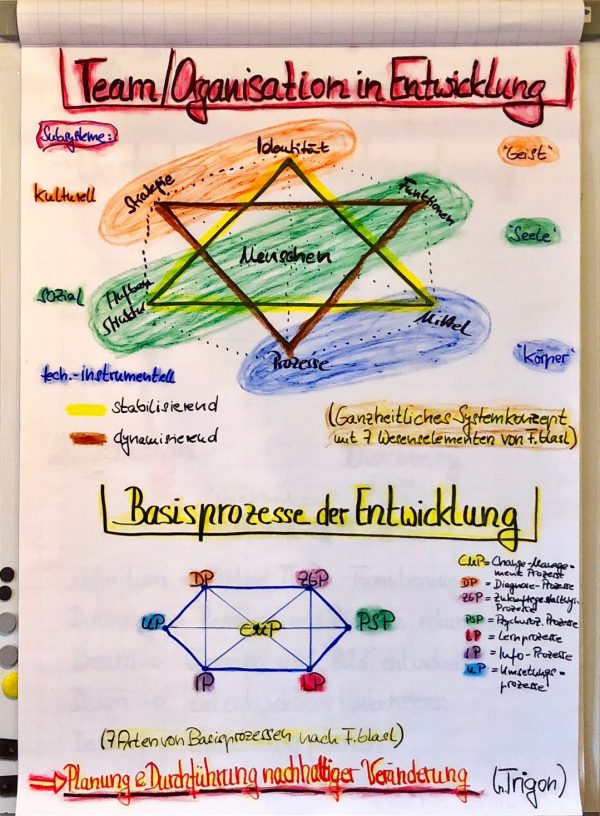 Team/Organisation in Entwicklung
Subsysteme:
Identität
"Geist"
kulturell
Strategie
Funktionen
Menschen
"Seele"
sozial
Aufbau
Struktur
Mittel
Prozesse
"Körper"
tech.-instrumentell
stabilisierend
dynamisierend
(Ganzheitliches Systemkonzept
mit 7 Wesenselementen von F. Glasl)
Basisprozesse der Entwicklung
DP
ZGP
UP
CMP
PSP
IP
LP
CMP = Change-Manage-
ment Prozesse
DP = Diagnose-Prozesse
ZGP = Zukunftsgestaltungs-
Prozesse
PSP = Psychosoz. Prozesse
LP = Lernprozesse
IP = Info-Prozesse
UP = Umsetzungs-
prozesse
(7 Arten von Basisprozessen nach F. Glasl)
Planung & Durchführung nachhaltiger Veränderung
(n. Trigon)